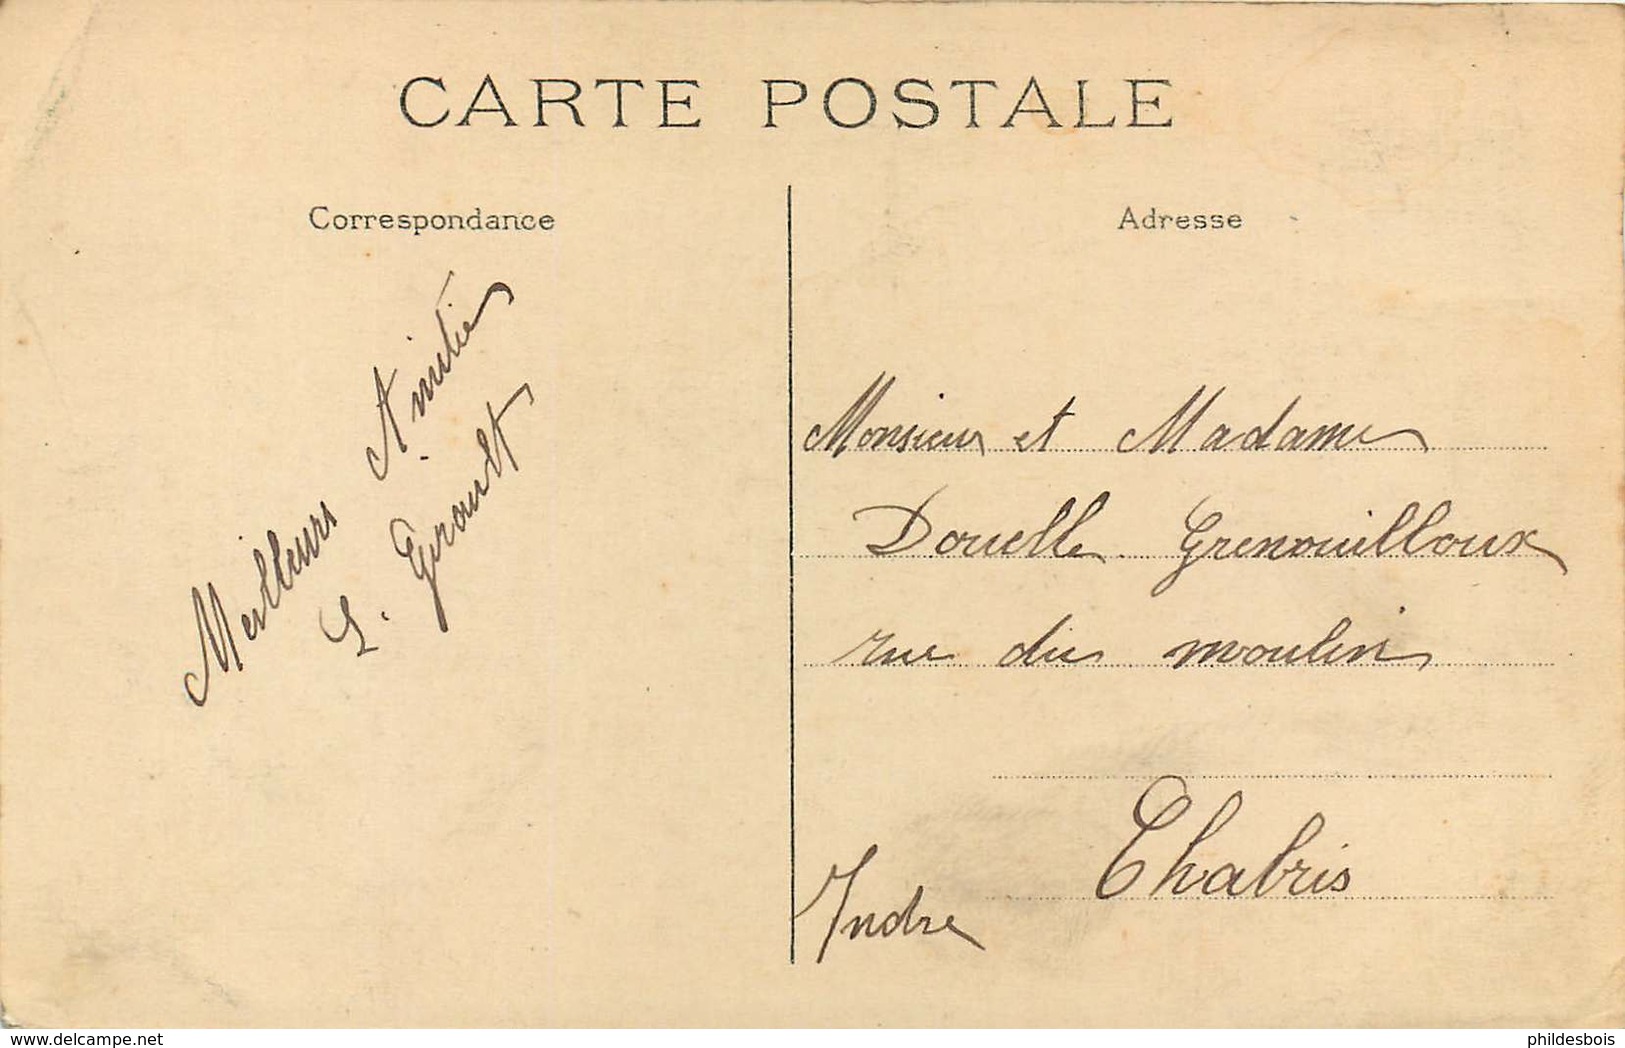 CARTE POSTALE
Correspondance
Meilleurs Amitié
L. Girault
Adresse
Monsieur et Madame
Douelle Grenouilloux
rue du moulin
Chabris
Indre
www.delcampe.net
phildesbois